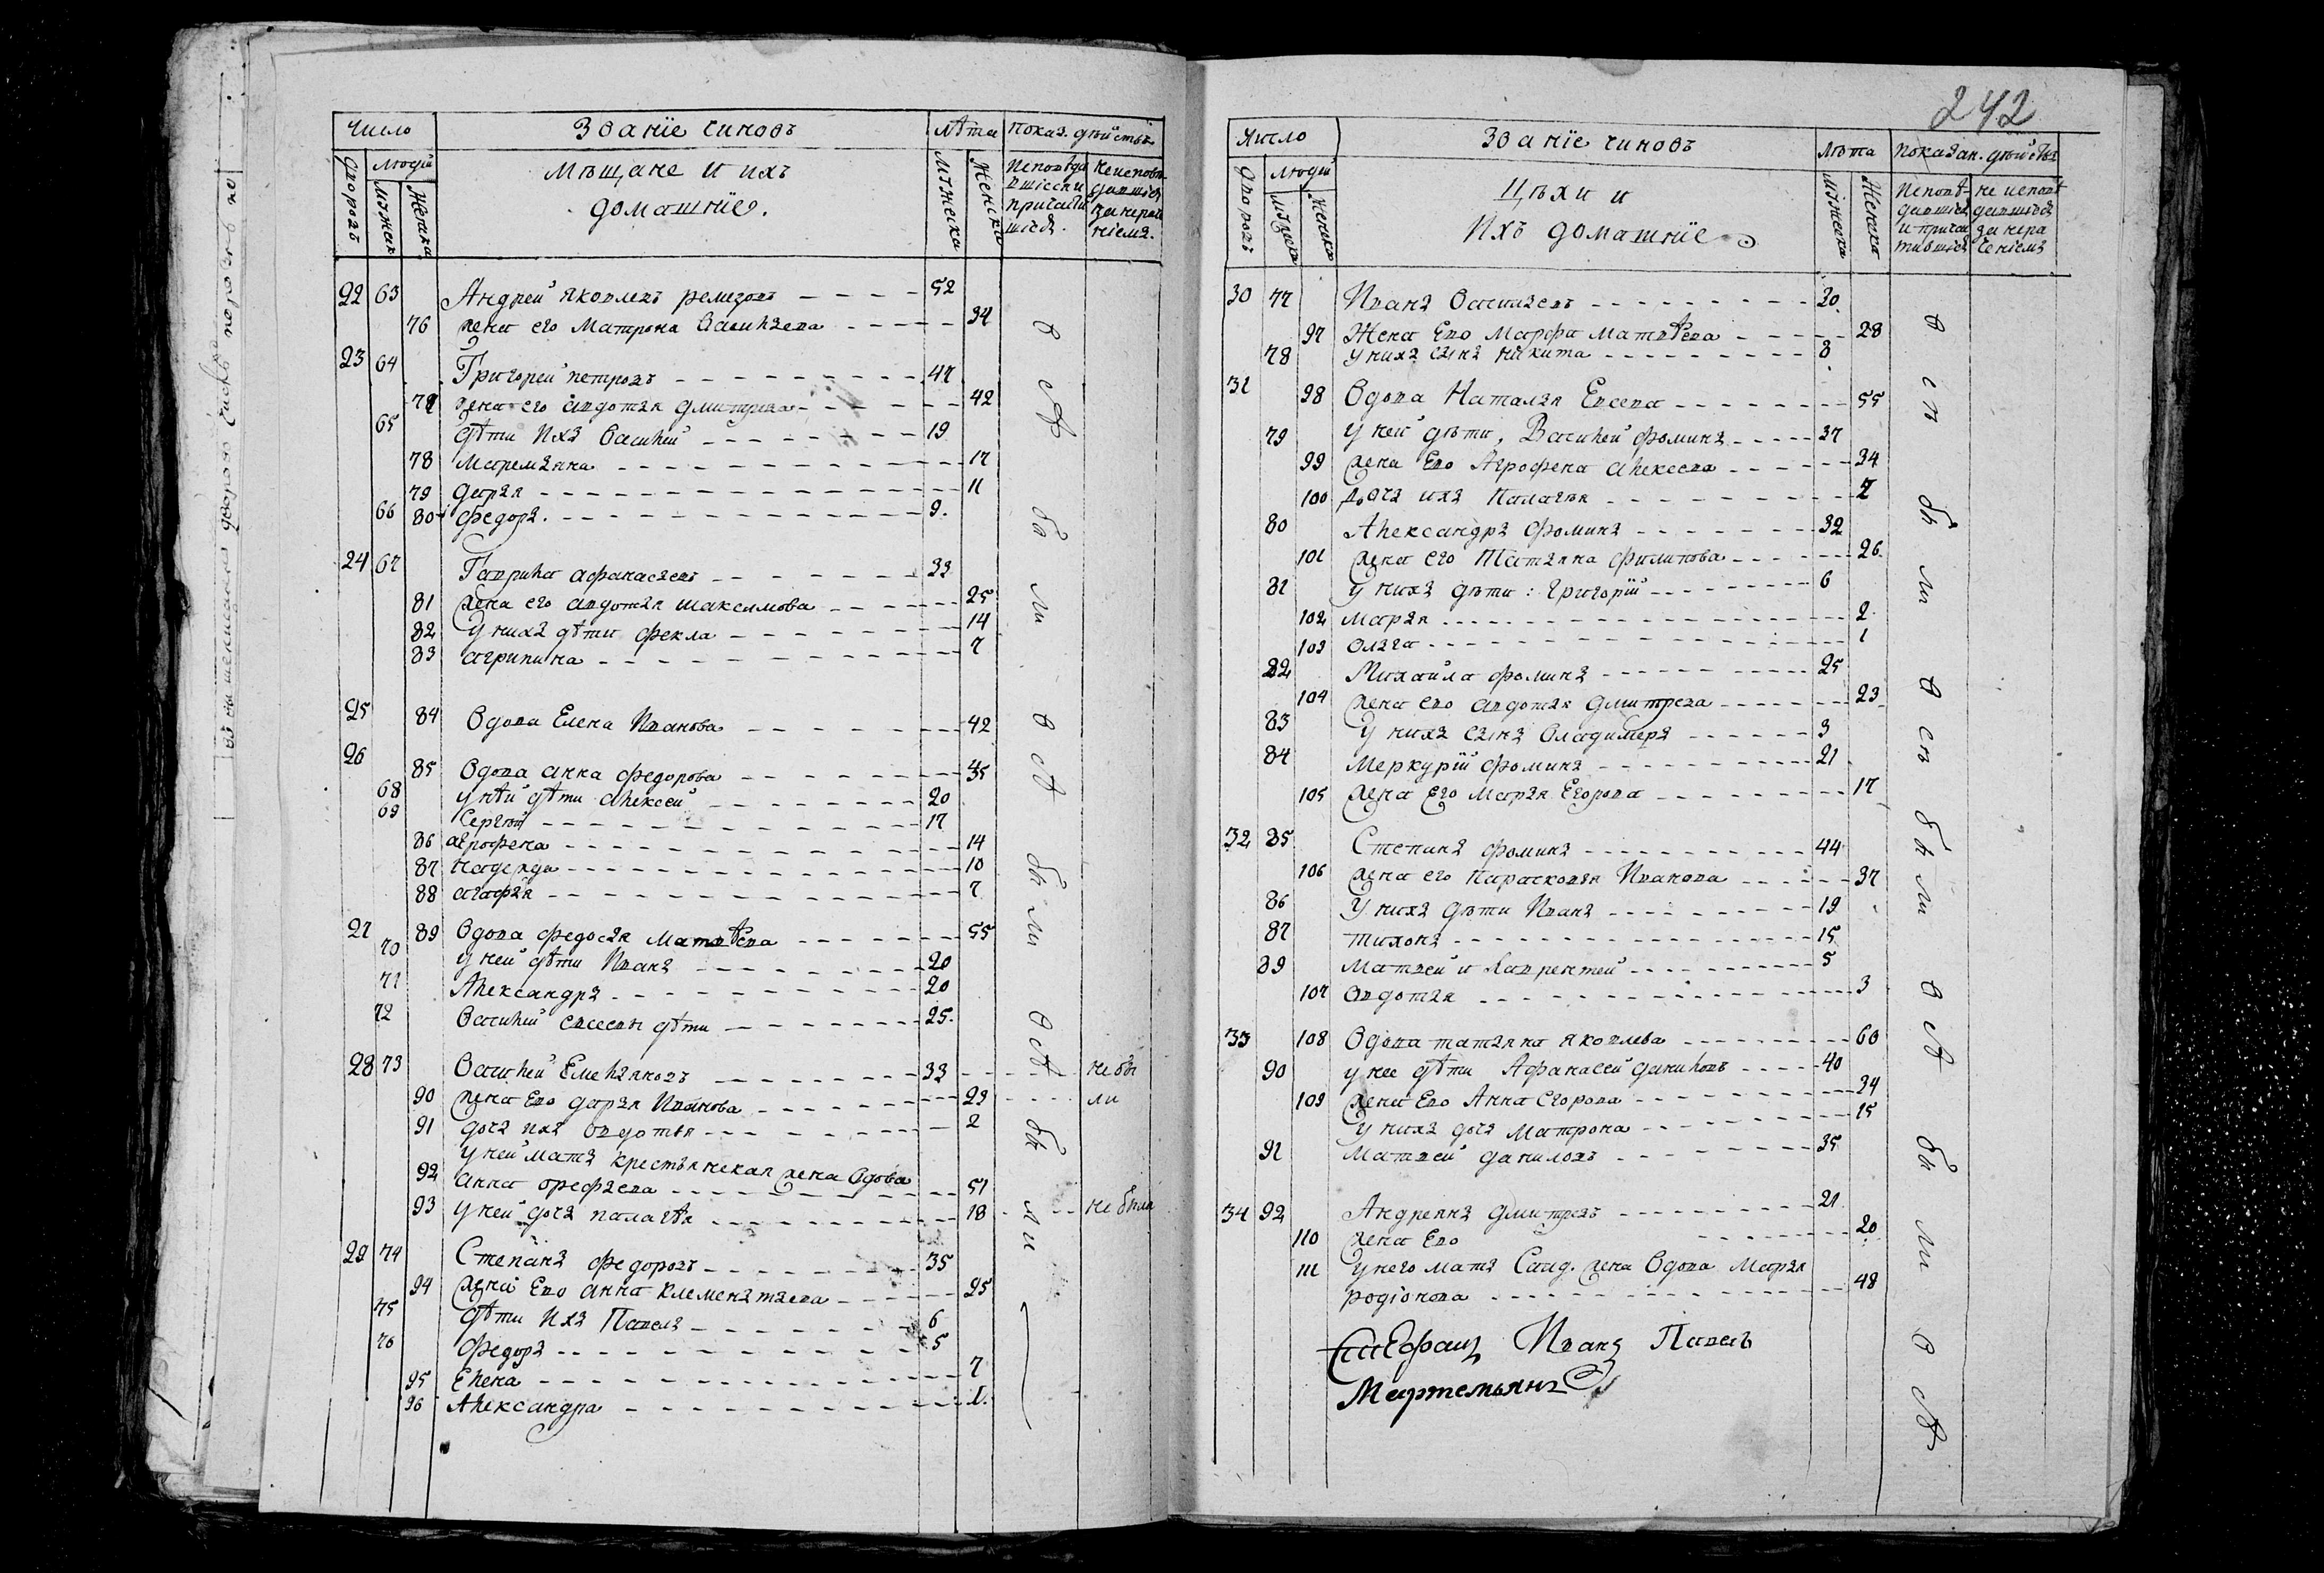 Число Званїе чиновъ Лѣта показ. дѣйствъ
Дворовъ Людей Мѣщане и ихъ домашнїе. Мужеска Женска
22 63 Андрей Яковлевъ ремезовъ 52
76 жена его Матрона Васильева 34
23 64 Григорей петровъ 47
77 жена его авдотья дмитрева 42
65 дѣти Ихъ Василей 19
78 Маремьяна 17
79 дарья 11
66 80 федоръ. 9.
24 67 Гаврила афанасьевъ 33
81 жена его авдотья максимова 25
82 у нихъ дѣти фекла 14
83 агрипина 7
25 84 Вдова Елена Иванова 42
26 85 Вдова анна федорова 45
68 у нѣй дѣти алексей 20
69 Сергѣй 17
86 агрофена 14
87 надежда 10
88 агафья 7
27 89 Вдова федосья Матвѣева 55
70 у ней дѣти Иванъ 20
71 Александръ 20
72 Василей евсеевы дѣти 25.
28 73 Василей Емельяновъ 33 не бы
90 жена Ево дарья Иванова 29 ли
91 дочь ихъ овдотья 2
у ней мать крестьянская жена Вдова
92 анна орефьева 51
93 у ней дочь палагѣя 18 не была
29 74 Степанъ федоровъ 35
94 жена Ево анна клеменътьева 25
75 дѣти Ихъ Павелъ 6
76 федоръ 5
95 Елена 7
96 Александра 1.
в сѣ бы ли в сѣ бы ли в сѣ бы ли
242
Число Званїе чиновъ Лѣта показан. дѣйствъ
Дворовъ Людей Цѣхи и Ихъ домашнїе Мужеска Женска
30 77 Иванъ Васильевъ 30.
97 Жена Ево Марфа Матвѣева 28
78 у нихъ сынъ никита 8
31 98 Вдова Наталья Евсева 55
79 у ней дѣти, Василей фоминъ 37
99 жена Ево Агрофена алексева 34
100 дочь ихъ палагѣя 7
80 Александръ фоминъ 32
101 жена его Татьяна филипова 26
81 у нихъ дѣти: григорїй 6
102 марья 2
103 ольга 1
82 Михайла фоминъ 25
104 жена ево авдотья дмитрева 23
83 у нихъ сынъ владимеръ 3
84 Меркурїй фоминъ 21
105 жена Его марья Егорова 17
32 85 Степанъ фоминъ 44
106 жена его парасковья Иванова 37
86 У нихъ дѣти Иванъ 19
87 тихонъ 15
89 матвей и лаврентей 5
107 овдотья 3
33 108 Вдова татьяна яковлева 60
90 у нее дѣти Афанасей даниловъ 40
109 жена Ево Анна егорова 34
у нихъ дочь матрона 15
91 матвей даниловъ 35
34 92 Андреянъ дмитревъ 21
110 жена Ево 20
111 у него мать Салд. жена Вдова марья
родїонова 48
в сѣ бы ли в сѣ бы ли в сѣ бы ли в сѣ
Иванъ Павелъ
Мартемьянъ